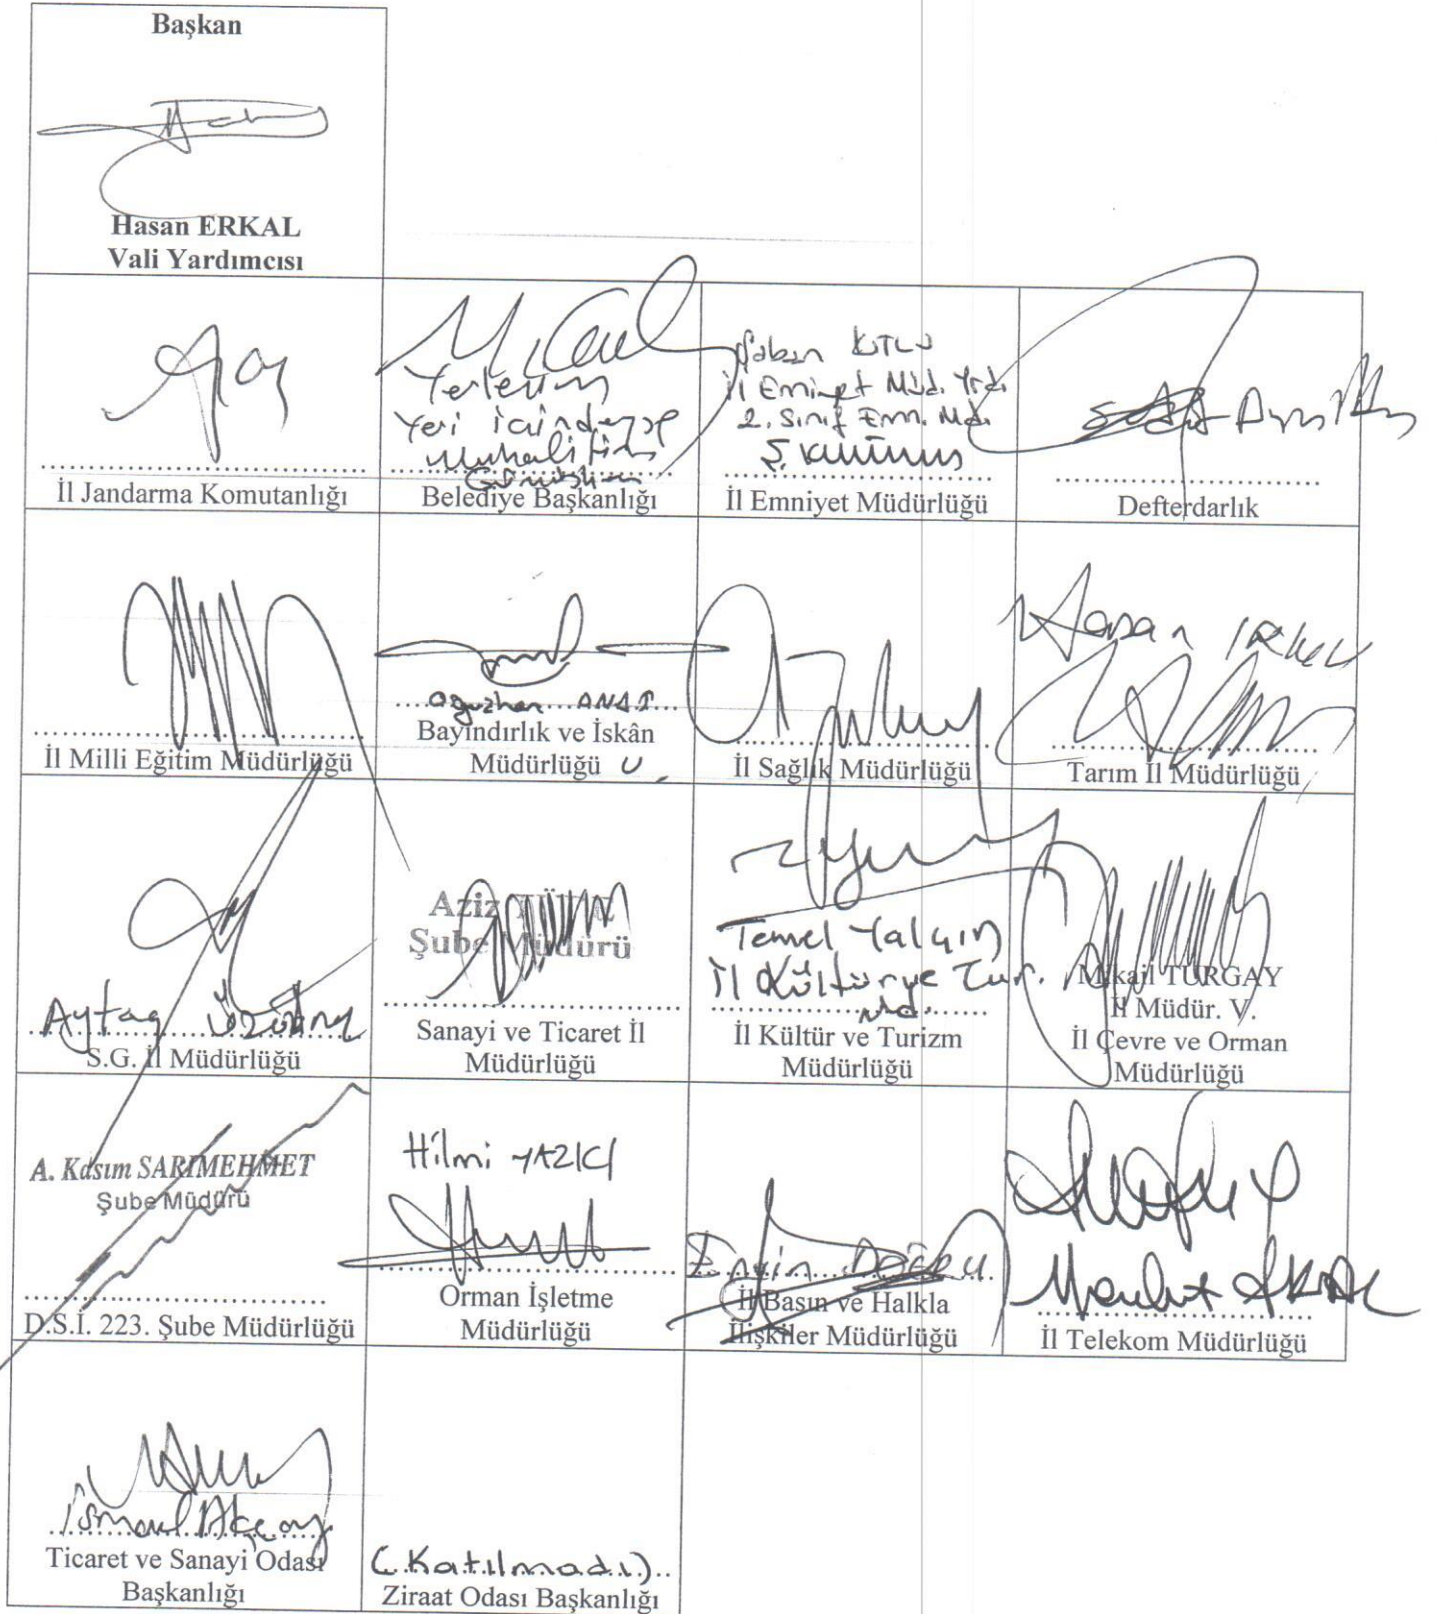 Başkan
Hasan ERKAL
Vali Yardımcısı
Yerleşim
Yeri içindeyse
Muhalifim
İl Jandarma Komutanlığı
Belediye Başkanlığı
Şaban KUTLU
İl Emniyet Müd. Yrd.
2. Sınıf Emn. Md.
İl Emniyet Müdürlüğü
Defterdarlık
İl Milli Eğitim Müdürlüğü
Oğuzhan
Bayındırlık ve İskân
Müdürlüğü
İl Sağlık Müdürlüğü
Hasan
Tarım İl Müdürlüğü
Aytaç
S.G. İl Müdürlüğü
Aziz
Şube Müdürü
Sanayi ve Ticaret İl
Müdürlüğü
Temel Yalçın
İl Kültür ve Tur.
Md.
İl Kültür ve Turizm
Müdürlüğü
Mikail TURGAY
İl Müdür. V.
İl Çevre ve Orman
Müdürlüğü
A. Kasım SARIMEHMET
Şube Müdürü
D.S.İ. 223. Şube Müdürlüğü
Hilmi YAZICI
Orman İşletme
Müdürlüğü
Engin Doğru
İl Basın ve Halkla
İlişkiler Müdürlüğü
İl Telekom Müdürlüğü
İsmail Akçay
Ticaret ve Sanayi Odası
Başkanlığı
(Katılmadı)
Ziraat Odası Başkanlığı